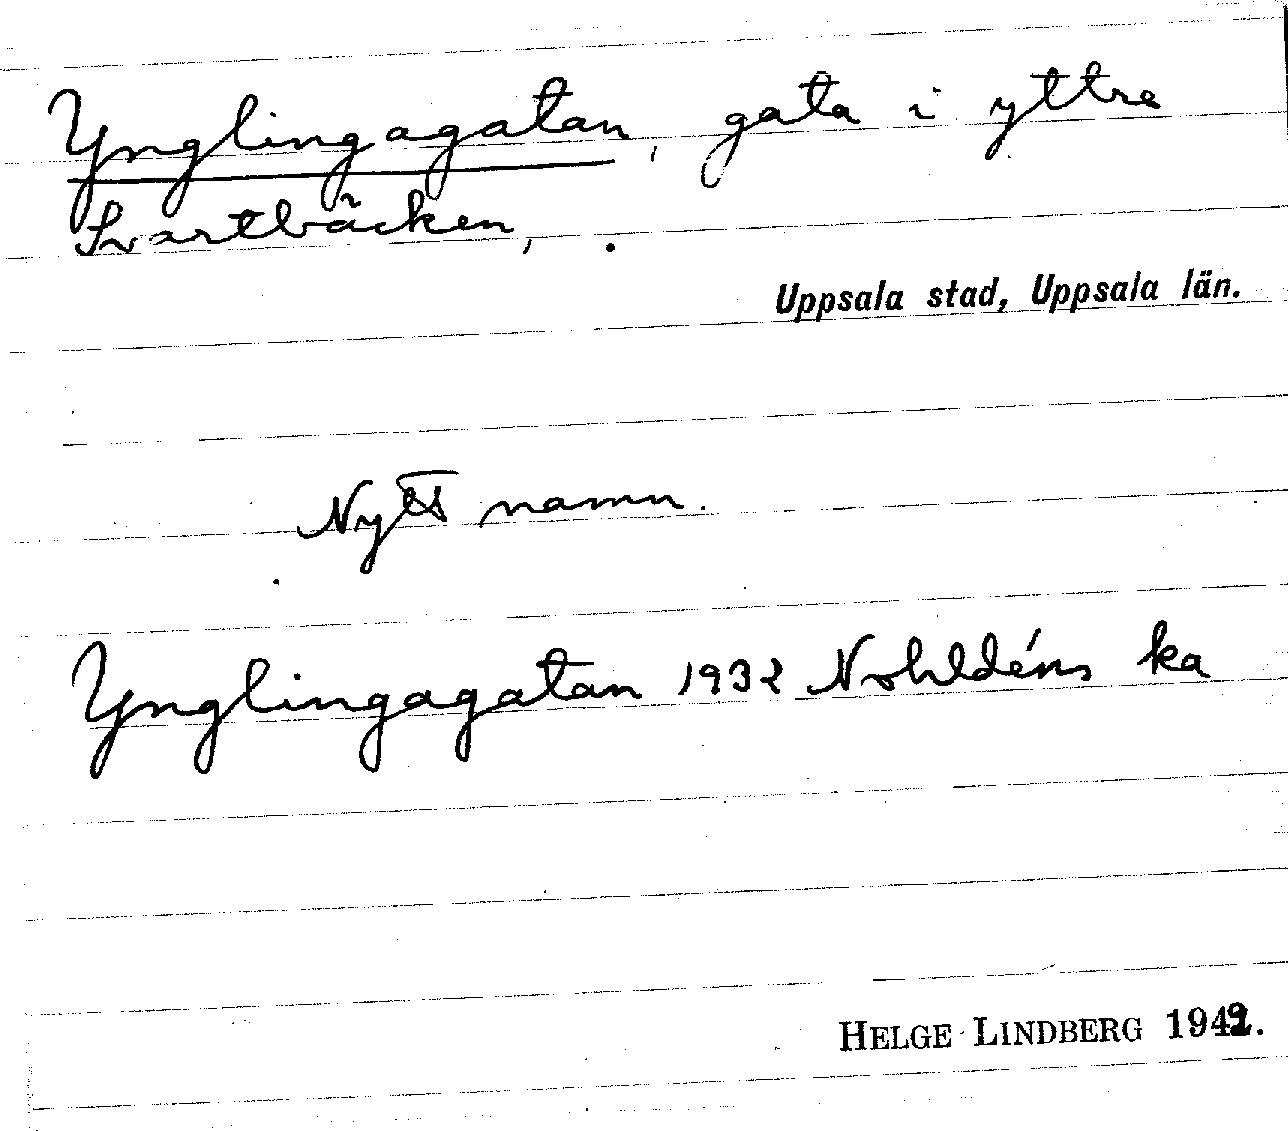 Ynglingagatan, gata i yttre
Svartbäcken,
Uppsala stad, Uppsala län.
Nytt namn.
Ynglingagatan 1932 Nohldéns ka
HELGE LINDBERG